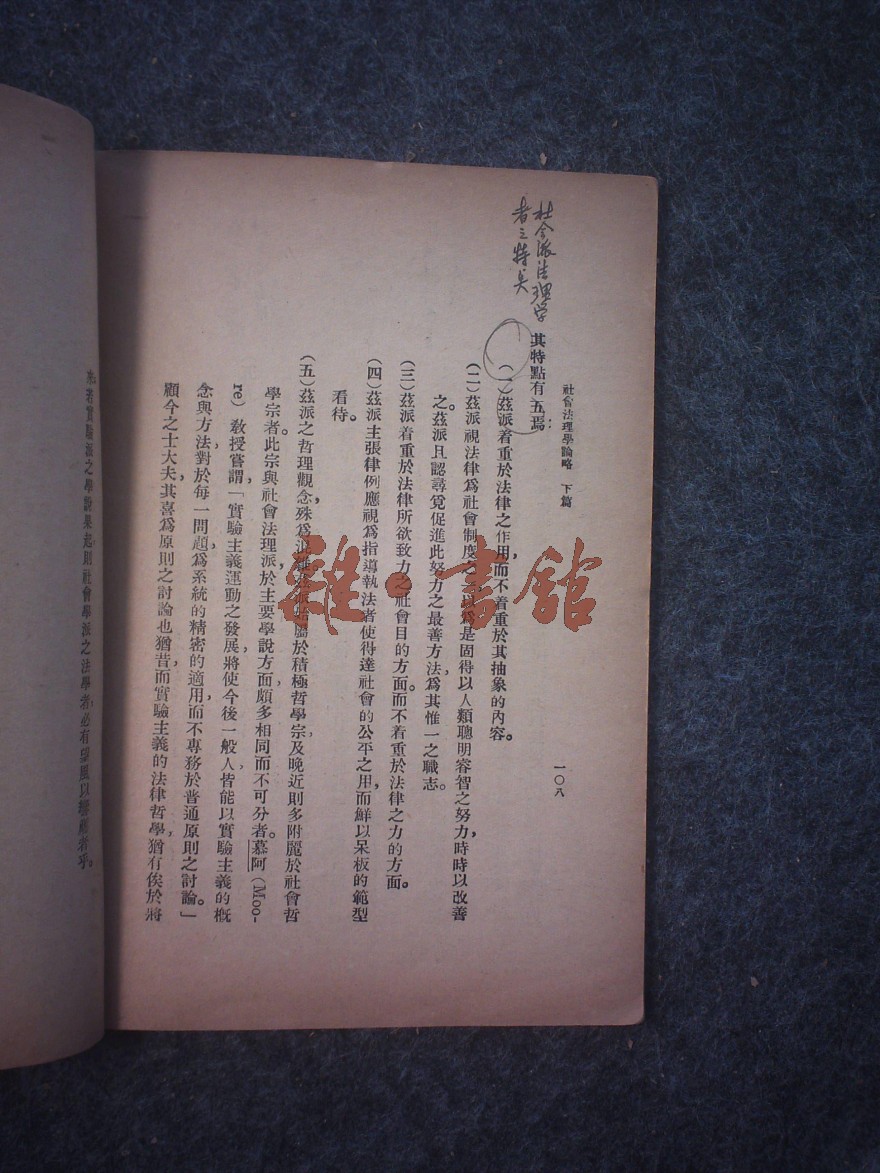 社會法理學論略　下篇
一〇八
社会派法理学
者之特点
其特點有五焉：
（一）茲派着重於法律之作用，而不着重於其抽象的內容。
（二）茲派視法律爲社會制度之一，以爲是固得以人類聰明睿智之努力，時時以改善
之。茲派且認尋覓促進此努力之最善方法，爲其惟一之職志。
（三）茲派着重於法律所欲致力之社會目的方面。而不着重於法律之力的方面。
（四）茲派主張律例應視爲指導執法者使得達社會的公平之用，而鮮以呆板的範型
看待。
（五）茲派之哲理觀念殊爲混雜。茲派始屬於積極哲學宗，及晚近則多附麗於社會哲
學宗者。此宗與社會法理派於主要學說方面，頗多相同而不可分者。慕阿（Moo-
re）敎授嘗謂「實驗主義運動之發展，將使今後一般人皆能以實驗主義的概
念與方法，對於每一問題爲系統的精密的適用，而不專務於普通原則之討論。」
顧今之士大夫，其喜爲原則之討論也猶昔，而實驗主義的法律哲學，猶有俟於將
來。若實驗派之學說果起，則社會學派之法學者，必有望風以響應者乎。
雜·書館